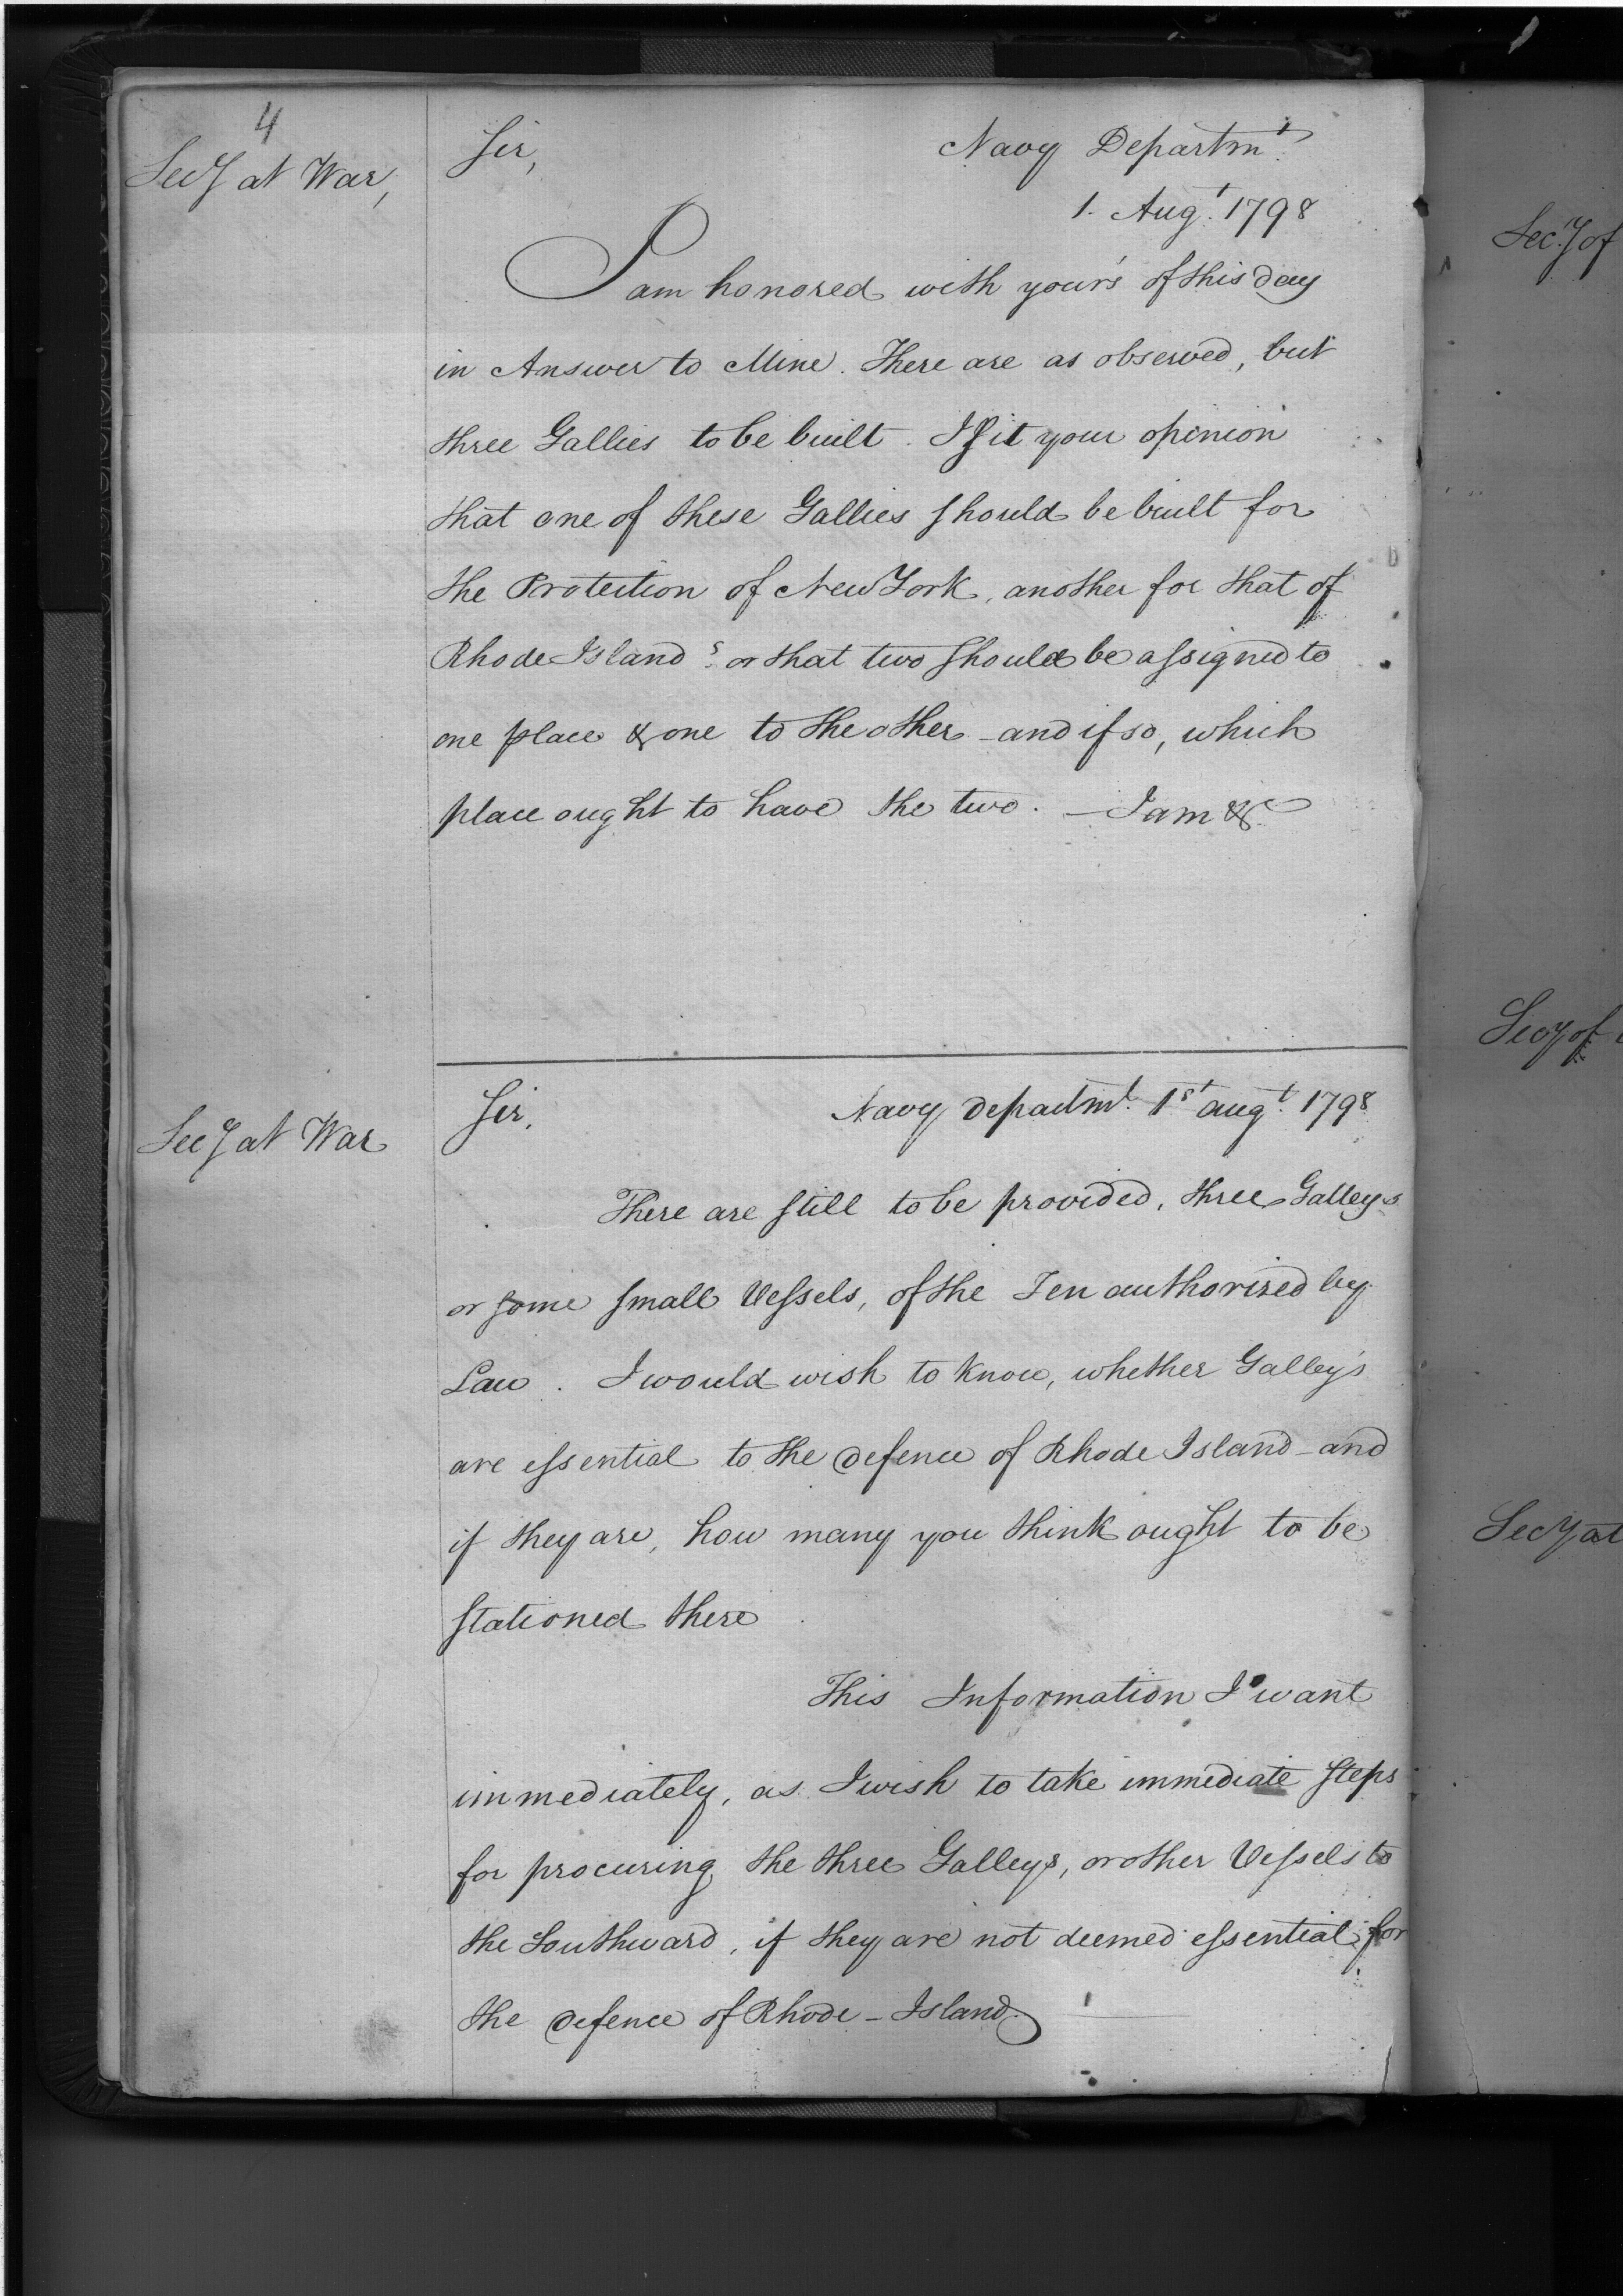 4
Secy at War,
Sir,
Navy Departmt.
1. Augt. 1798
I am honored with your's of this day
in Answer to Mine. There are as observed, but
three Gallies to be built. Is it your opinion
that one of these Gallies should be built for
the Protection of New York, another for that of
Rhode Island? or that two should be assigned to
one place & one to the other - and if so, which
place ought to have the two. — I am &c
Secy at War
Sir,
Navy departmt. 1st augt. 1798
There are still to be provided, three Galleys
or some small Vessels, of the Ten authorized by
Law. I would wish to know, whether Galley's
are essential to the defence of Rhode Island - and
if they are, how many you think ought to be
stationed there.
This Information I want
immediately, as I wish to take immediate steps
for procuring the three Galleys, or other Vessels to
the Southward, if they are not deemed essential for
the defence of Rhode-Island.
Secy of
Secy of
Secy at